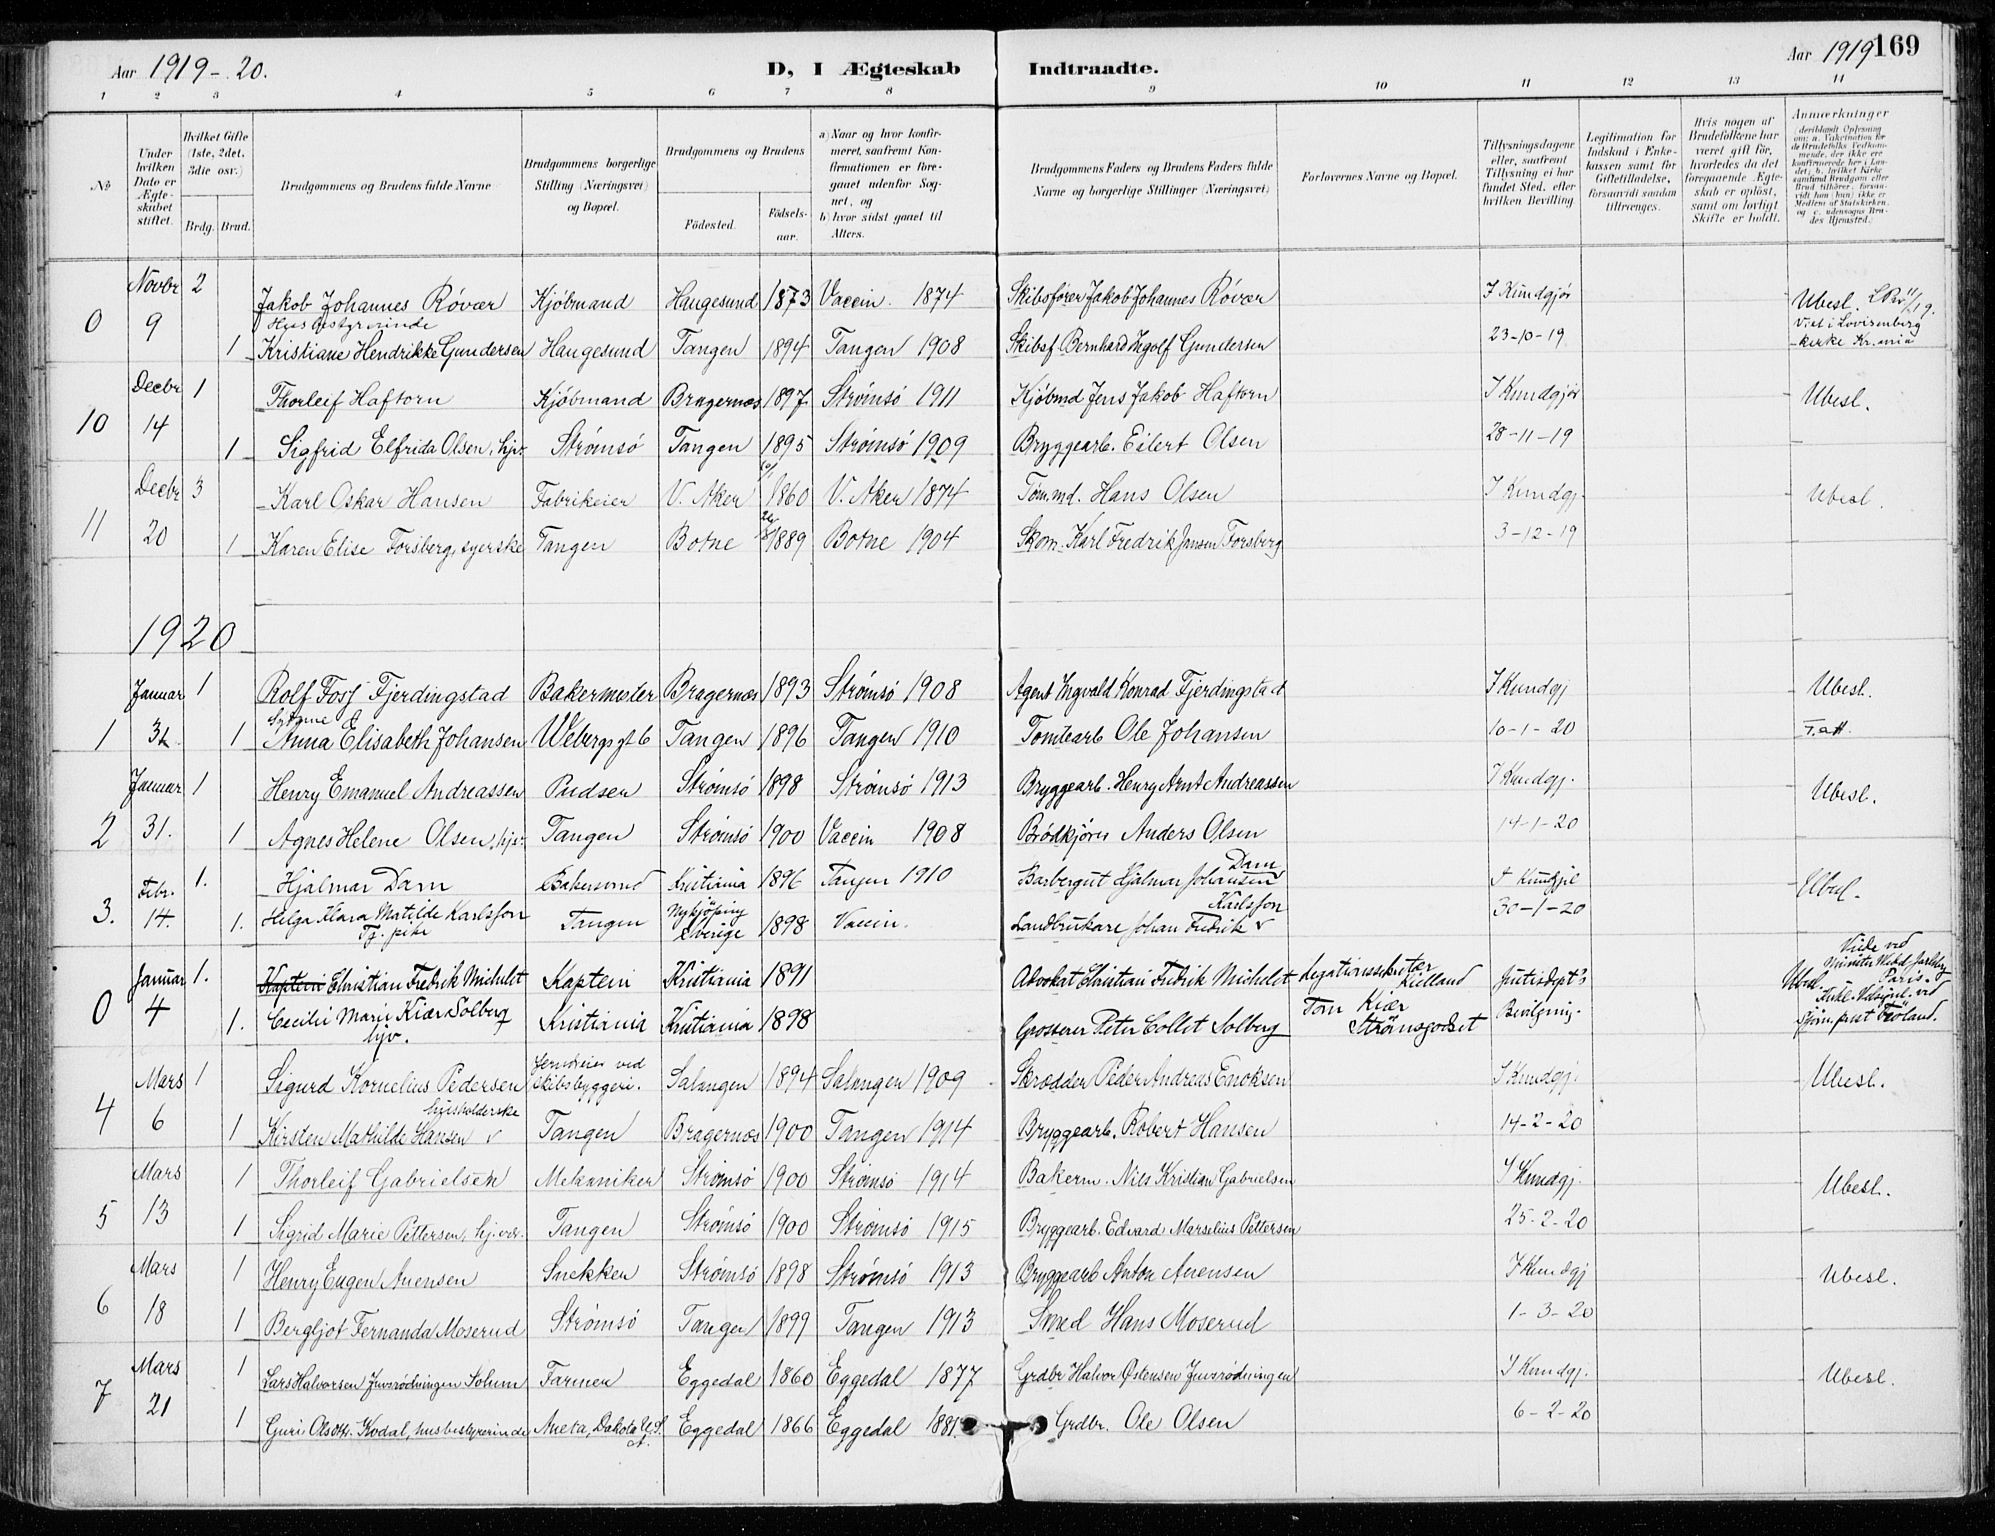 Aar 1919-20. D, I Ægteskab Indtraadte. Aar 1919 169
1 2 3 4 5 6 7 8 9 10 11 12 13 14
No
Under hvilken Dato er Ægteskabet stiftet.
Hvilket Gifte (1ste, 2det, 3die osv.)
Brdg. Brud.
Brudgommens og Brudens fulde Navne
Brudgommens borgerlige Stilling (Næringsvei) og Bopæl.
Brudgommens og Brudens
Fødested. Fødselsaar.
a) Naar og hvor konfirmeret, saafremt Konfirmationen er foregaaet udenfor Sognet, og
b) hvor sidst gaaet til Alters.
Brudgommens Faders og Brudens Faders fulde Navne og borgerlige Stillinger (Næringsvei)
Forlovernes Navne og Bopæl.
Tillysningsdagene eller, saafremt Tillysning ei har fundet Sted, efter hvilken Bevilling
Legitimation for Indskud i Enkekassen samt for Giftetilladelse, forsaavidt saadan tiltrænges.
Hvis nogen af Brudefolkene har været gift før, hvorledes da det foregaaende Ægteskab er opløst, samt om lovligt Skifte er holdt.
Anmærkninger
(deriblandt Oplysning om: a. Vakcination for de Brudefolks Vedkommende, der ikke ere konfirmerede her i Landet; b. hvilket Kirkesamfund Brudgom eller Brud tilhører, forsaavidt han (hun) ikke er Medlem af Statskirken, og c. udensogns Brudes Hjemsted.)
0 Novbr 9 2 Jakob Johannes Røvær Kjøbmand Haugesund 1873 Vaccin. 1874 Skibsfører Jakob Johannes Røvær I Kundgjør Ubesl.
Husbestyrerinde
1 Kristiane Hendrikke Gundersen Haugesund Tangen 1894 Tangen 1908 Skibsf. Bernhard Ingolf Gundersen 23-10-19 Viet i Lovisenberg kirke Kr.ania
10 Decbr 14 1 Thorleif Haftorn Kjøbmand Bragernæs 1897 Strømsø 1911 Kjøbmd Jens Jakob Haftorn I Kundgjør Ubesl.
1 Sigfrid Elfrida Olsen, hjv. Strømsø Tangen 1895 Strømsø 1909 Bryggearb. Eilert Olsen 28-11-19
11 Decbr 20 3 Karl Oskar Hansen Fabrikeier V. Aker 1860 V. Aker 1874 Tøm.md. Hans Olsen I Kundgj. Ubesl.
1 Karen Elise Forsberg, syerske Tangen Botne 1889 Botne 1904 Skom. Karl Fredrik Jansen Forsberg 3-12-19
1920
1 Januar 31. 1 Rolf Foss Fjerdingstad Bakermester Bragernæs 1893 Strømsø 1908 Agent Ingvald Konrad Fjerdingstad I Kundgj Ubesl.
1 Anna Elisabeth Johansen Webergsgt 6 Tangen 1896 Tangen 1910 Tomtearb Ole Johansen 10-1-20 T.att.
2 Januar 31. 1 Henry Emanuel Andreassen Pudser Strømsø 1898 Strømsø 1913 Bryggearb. Henry Arnt Andreassen I Kundgj. Ubesl.
1 Agnes Helene Olsen, hjv. Tangen Strømsø 1900 Vaccin 1908 Brødkjører Anders Olsen 14-1-20
3. Febr. 14. 1. Hjalmar Dam Bakersvend Kristiania 1896 Tangen 1910 Barbergut Hjalmar Johansen Dam I Kundgjl Ubesl.
1. Helga Klara Matilde Karlsson Tj. pike Tangen Nykjøping Sverige 1898 Vaccin. Landbrukare Johan Fredrik Karlsson 30-1-20
0 Januar 4 1. Kaptein Christian Fredrik Michelet Kaptein Kristiania 1891 Advokat Christian Fredrik Michelet Legationssekretær Kielland Justisdept's Ubesl. Viede ved Minister Wedel Jarlsberg Paris.
1. Cecilie Marie Kiær Solberg hjv. Kristiania Kristiania 1898 Grosserer Peter Collet Solberg Tom Kiær Strømsgodset Bevilgning. Kirkl. Velsignl. ved Sjøm.prest Frøland.
4 Mars 6 1 Sigurd Kornelius Pedersen skibsbyggeri. Salangen 1894 Salangen 1909 Skrædder Peder Andreas Enoksen I Kundgj. Ubesl.
husholderske
1 Kirsten Mathilde Hansen Tangen Bragernæs 1900 Tangen 1914 Bryggearb. Robert Hansen 14-2-20
5 Mars 13 1 Thorleif Gabrielsen Mekaniker Strømsø 1900 Strømsø 1914 Bakerm. Nils Kristian Gabrielsen I Kundgj. Ubesl.
1 Sigrid Marie Pettersen, hj.vær. Tangen Strømsø 1900 Strømsø 1915 Bryggearb. Edvard Marselius Pettersen 25-2-20
6 Mars 18 1 Henry Eugen Arensen Snekker Strømsø 1898 Strømsø 1913 Bryggearb Anton Arensen I Kundgj Ubesl.
1 Bergljot Fernanda Moserud Strømsø Tangen 1899 Tangen 1913 Smed Hans Moserud 1-3-20
7 Mars 21 1 Lars Halvorsen Juvsrødningen Solum Farmer Eggedal 1860 Eggedal 1877 Grdbr Halvor Østensen Juvsrødningen I Kundgj. Ubesl.
1 Guri Olsdtr. Kodal, husbestyrerinde Aneta, Dakota U.S.A. Eggedal 1866 Eggedal 1881. Grdbr. Ole Olsen 6-2-20